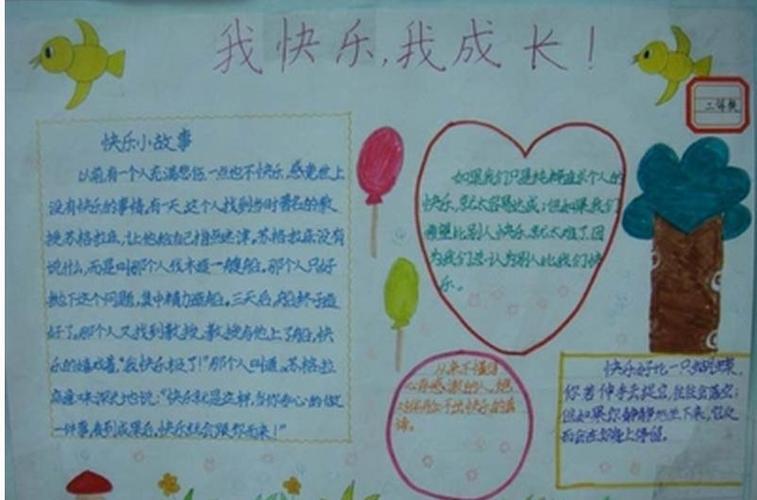 我快乐,我成长!
二年级
快乐小故事
以前有一个人充满悲伤,一点也不快乐,感觉世上
没有快乐的事情,有一天,这个人找到当时著名的教
授苏格拉底,让他给自己指点迷津。苏格拉底没有
说什么,而是叫那个人伐木造一艘船。那个人只好
抛下这个问题,集中精力造船。三天后,船终于造
好了。那个人又找到教授,教授与他上了船,快
乐的嬉戏着,“我快乐极了!”那个人叫道,苏格拉
底意味深长地说:“快乐就是这样,当你专心的做
一件事,看到成果后,快乐就会跟你而来!”
如果我们只是纯粹追求个人的
快乐,就太容易达成;但如果我们
希望比别人快乐,就太难了,因
为我们总认为别人比我们快
乐。
从来不懂得
心存感激的人,绝
不出快乐的真
谛。
快乐好比一只蝴蝶,
你若伸手去捉它,往往会落空;
但如果你静静地坐下来,它反
而会在你身上停留。